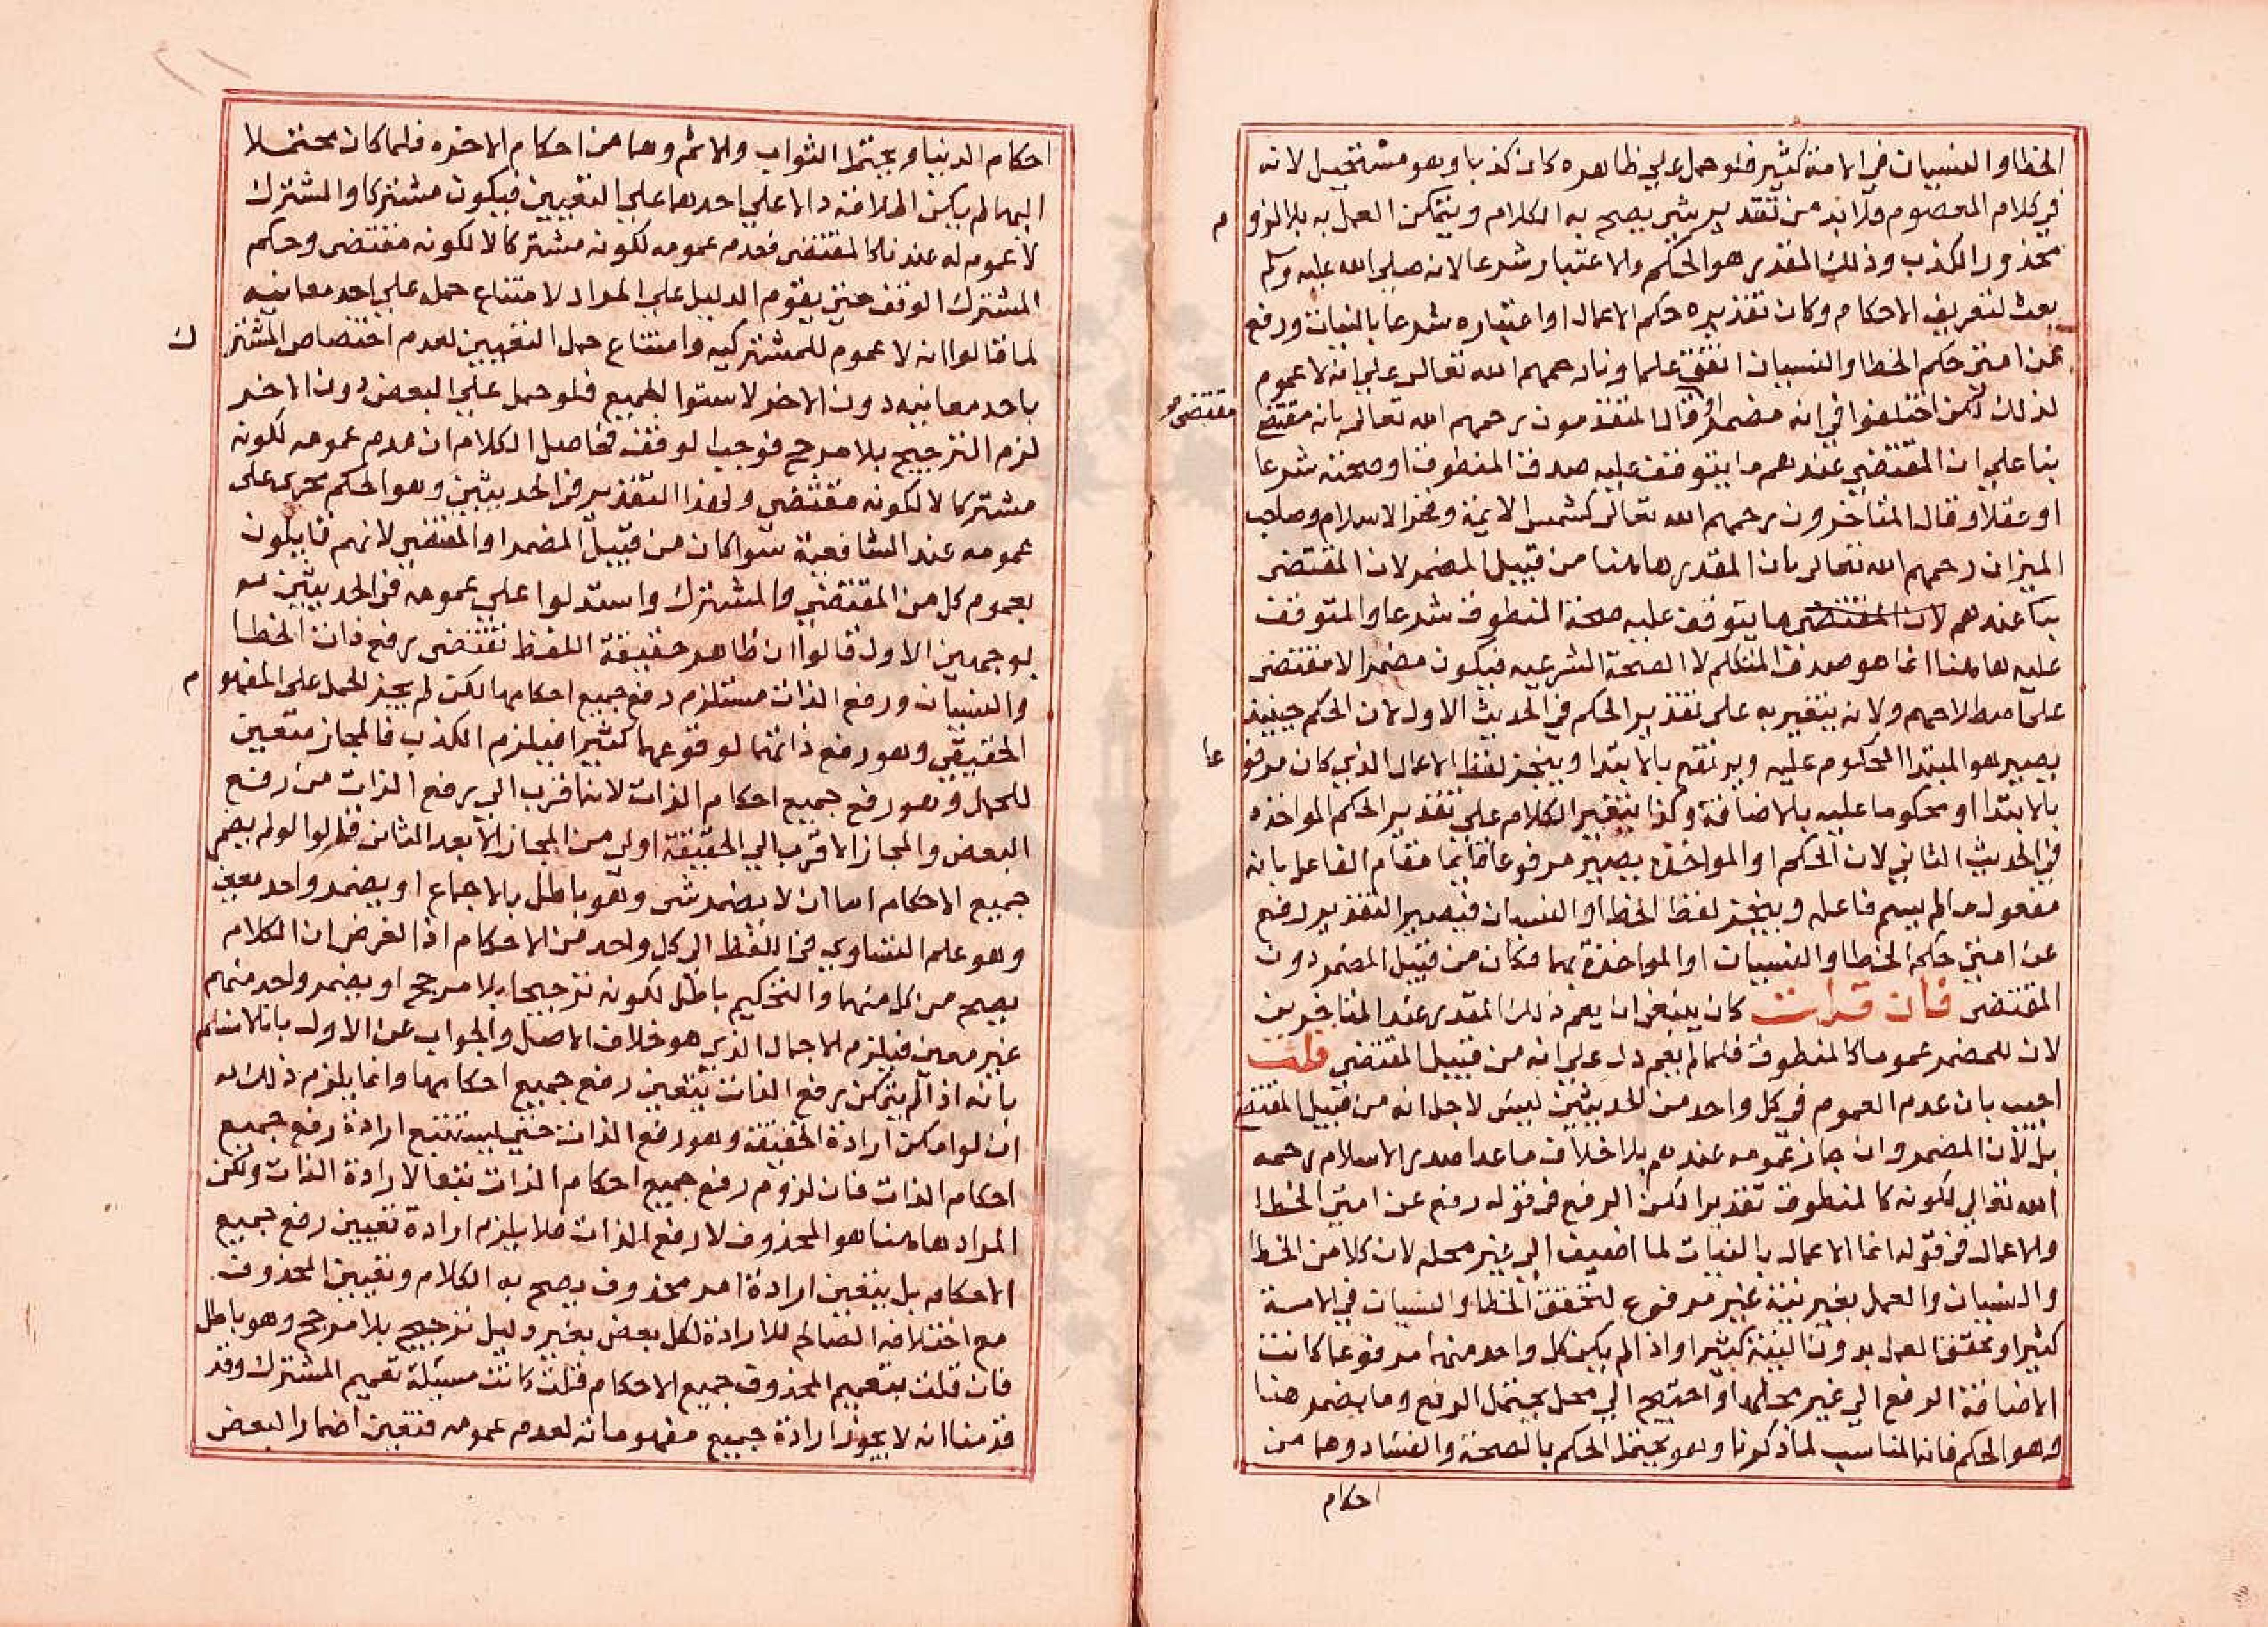 الخطا والنسيان في الامة كثير فلو حمل علي ظاهره كان كذبا وهو مستحيل لانه
في كلام المعصوم ولا بد من تقدير شي يصح به الكلام ويتمكن العمل به بلا لزو
م
محذور الكذب وذلك المقدر هو الحكم والاعتبار شرعا لانه صلي الله عليه وسلم
بعث لتعريف الاحكام وكان تقديره حكم الاعمال او اعتباره شرعا بالنيات ورفع
عن امتي حكم الخطا والنسيان اتفق علماونا رحمهم الله تعالي علي انه لا عموم
لذلك لكن اختلفوا في انه مضمر او قال المتقدمون رحمهم الله تعالي بانه مقتضي
مقتضي
بنا علي ان المقتضي عندهم ما يتوقف عليه صدق المنطوق او صحته شرعا
او عقلا وقال المتاخرون رحمهم الله تعالي كشمس الائمة وفخر الاسلام وصاحب
الميزان رحمهم الله تعالي بان المقدر هاهنا من قبيل المضمر لان المقتضي
عندهم لان المقتضي ما يتوقف عليه صحة المنطوق شرعا والمتوقف
عليه هاهنا انما هو صدق المتكلم لا الصحة الشرعيه فيكون مضمرا لا مقتضي
علي اصطلاحهم ولانه يتغير به علي تقدير الحكم في الحديث الاول لان الحكم حينيذ
يصير هو المبتدا المحكوم عليه ويرتفع بالابتدا وينجر لفظ الاعمال الذي كان مرفو
عا
بالابتدا او محكوما عليه بالاضافة وكذا يتغير الكلام علي تقدير الحكم المواخذه
في الحديث الثاني لان الحكم او المواخذه يصير مرفوعا قايما مقام الفاعل بانه
مفعول ما لم يسم فاعله وينجر لفظ الخطا والنسيان فيصير التقدير رفع
عن امتي حكم الخطا والنسيان او المواخذة بهما فكان من قبيل المضمر دون
المقتضي فان قرات كان ينبغي ان يعم ذلك المقدر عند المتاخرين
لان للمضمر عموما كالمنطوق فلما لم يعم دل علي انه من قبيل المقتضي قلت
اجيب بان عدم العموم في كل واحد من الحديثين ليس لاجل انه من قبيل المقتضي
بل لان المضمر وان جاز عمومه عندهم بلا خلاف ما عدا صدر الاسلام رحمه
الله تعالي لكونه كالمنطوق تقديرا لكن الرفع في قوله رفع عن امتي الخطا
والاعمال في قوله انما الاعمال بالنيات لما اضيف الي غير محله لان كلا من الخطا
والنسيان والعمل بغير نية غير مرفوع لتحقق الخطا والنسيان في الامة
كثيرا وتحقق العمل بدون النية كثيرا واذا لم يكن كل واحد منهما مرفوعا كانت
الاضافة الرفع الي غير محلها او احتيج الي محل يحتمل الرفع وما يضمر هنا
وهو الحكم فانه المناسب لما ذكرنا وهو يحتمل الحكم بالصحة والفساد وهما من
احكام
احكام الدنيا ويحتمل الثواب والاثم وهما من احكام الاخره فلما كان محتملا
اليهما لم يكن اطلاقه دالا علي احدهما علي التعيين فيكون مشتركا والمشترك
لا عموم له عندنا كالمقتضي فعدم عمومه لكونه مشتركا لا لكونه مقتضي وحكم
المشترك الوقف حتي يقوم الدليل علي المراد لامتناع حمله علي احد معانيه
لما قالوا انه لا عموم للمشتركيه وامتناع حمل التعيين لعدم اختصاص المشتر
ك
باحد معانيه دون الاخر لاستوا الجميع فلو حمل علي البعض دون الاخر
لزم الترجيح بلا مرجح فوجب الوقف فحاصل الكلام ان عدم عمومه لكونه
مشتركا لا لكونه مقتضي ولهذا التقدير في الحديثين وهو الحكم يجري علي
عمومه عند الشافعية سوا كان من قبيل المضمر او المقتضي لانهم قايلون
بعموم كل من المقتضي والمشترك واستدلوا علي عمومه في الحديثين
بوجهين الاول قالوا ان ظاهر حقيقة اللفظ تقتضي رفع ذات الخطا
والنسيان ورفع الذات مستلزم رفع جميع احكامها لكن لم يجز الحمل علي المفهو
م
الحقيقي وهو رفع ذاتهما لوقوعهما كثيرا فيلزم الكذب فالمجاز متعين
للحمل وهو رفع جميع احكام الذات لانها اقرب الي رفع الذات من رفع
البعض والمجاز الاقرب الي الحقيقة اولي من المجاز الابعد الثاني قالوا لو لم يضمر
جميع الاحكام اما ان لا يضمر شي وهو باطل بالاجماع او يضمر واحد بعين
وهو علم التساوي في اللفظ الي كل واحد من الاحكام اذ الغرض ان الكلام
يصح من كل منهما والتحكيم باطل لكونه ترجيحا بلا مرجح او يضمر واحد منهم
غير معين فيلزم الاجمال الذي هو خلاف الاصل والجواب عن الاول بانا لا نسلم
بانه اذا لم يتركن رفع الذات يتعين رفع جميع احكامها وانما يلزم ذلك
ان لو امكن ارادة الحقيقة وهو رفع الذات حتي يستتبع ارادة رفع جميع
احكام الذات فان لزوم رفع جميع احكام الذات تبعا لارادة الذات ولكن
المراد هاهنا هو المحذوف لا رفع الذات فلا يلزم ارادة تعيين رفع جميع
الاحكام بل يتعين ارادة امر محذوف يصح به الكلام وتعيين المحذوف
مع اختلافه الصالح للارادة لكل بعض بغير دليل ترجيح بلا مرجح وهو باطل
فان قلت بتعميم المحذوف جميع الاحكام قلت كانت مسئلة تعميم المشترك وقد
قدمنا انه لا يجوز ارادة جميع مفهوماته لعدم عمومه فتعين اضمار البعض